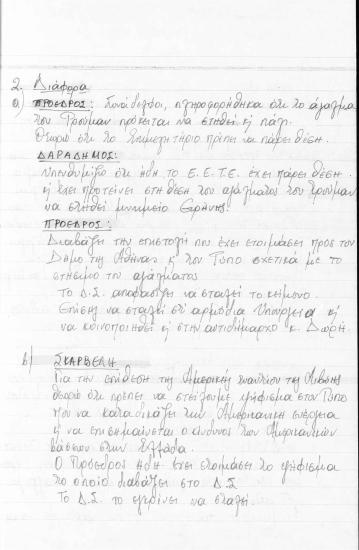 2. Διάφορα
α) ΠΡΟΕΔΡΟΣ: Συνάδελφοι, πληροφορήθηκα ότι το άγαλμα
του Τρούμαν πρόκειται να στηθεί κ πάλι.
Θεωρώ ότι το Επιμελητήριο πρέπει να πάρει θέση.
ΔΑΡΑΔΗΜΟΣ:
Υπενθυμίζω ότι ήδη το Ε.Ε.Τ.Ε. έχει πάρει θέση
κ έχει προτείνει στη θέση του αγάλματος του Τρούμαν
να στηθεί μνημείο Ειρήνης.
ΠΡΟΕΔΡΟΣ:
Διαβάζει την επιστολή που έχει ετοιμάσει προς τον
Δήμο της Αθήνας κ τον Τύπο σχετικά με το
στήσιμο του αγάλματος
Το Δ.Σ. αποφασίζει να σταλεί το κείμενο.
Επίσης να σταλεί στα αρμόδια Υπουργεία κ
να κοινοποιηθεί κ στην αντιδήμαρχο κ. Δώρη.
β) ΣΚΑΡΒΕΛΗ:
Για την επίθεση της Αμερικής εναντίον της Λιβύης
θεωρώ ότι πρέπει να στείλουμε ψήφισμα στον Τύπο
που να καταδικάζει την Αμερικανική ενέργεια
κ να επισημαίνεται ο κίνδυνος των Αμερικανικών
βάσεων στην Ελλάδα.
Ο Πρόεδρος ήδη έχει ετοιμάσει το ψήφισμα
το οποίο διαβάζει στο Δ.Σ
Το Δ.Σ. το εγκρίνει να σταλεί.